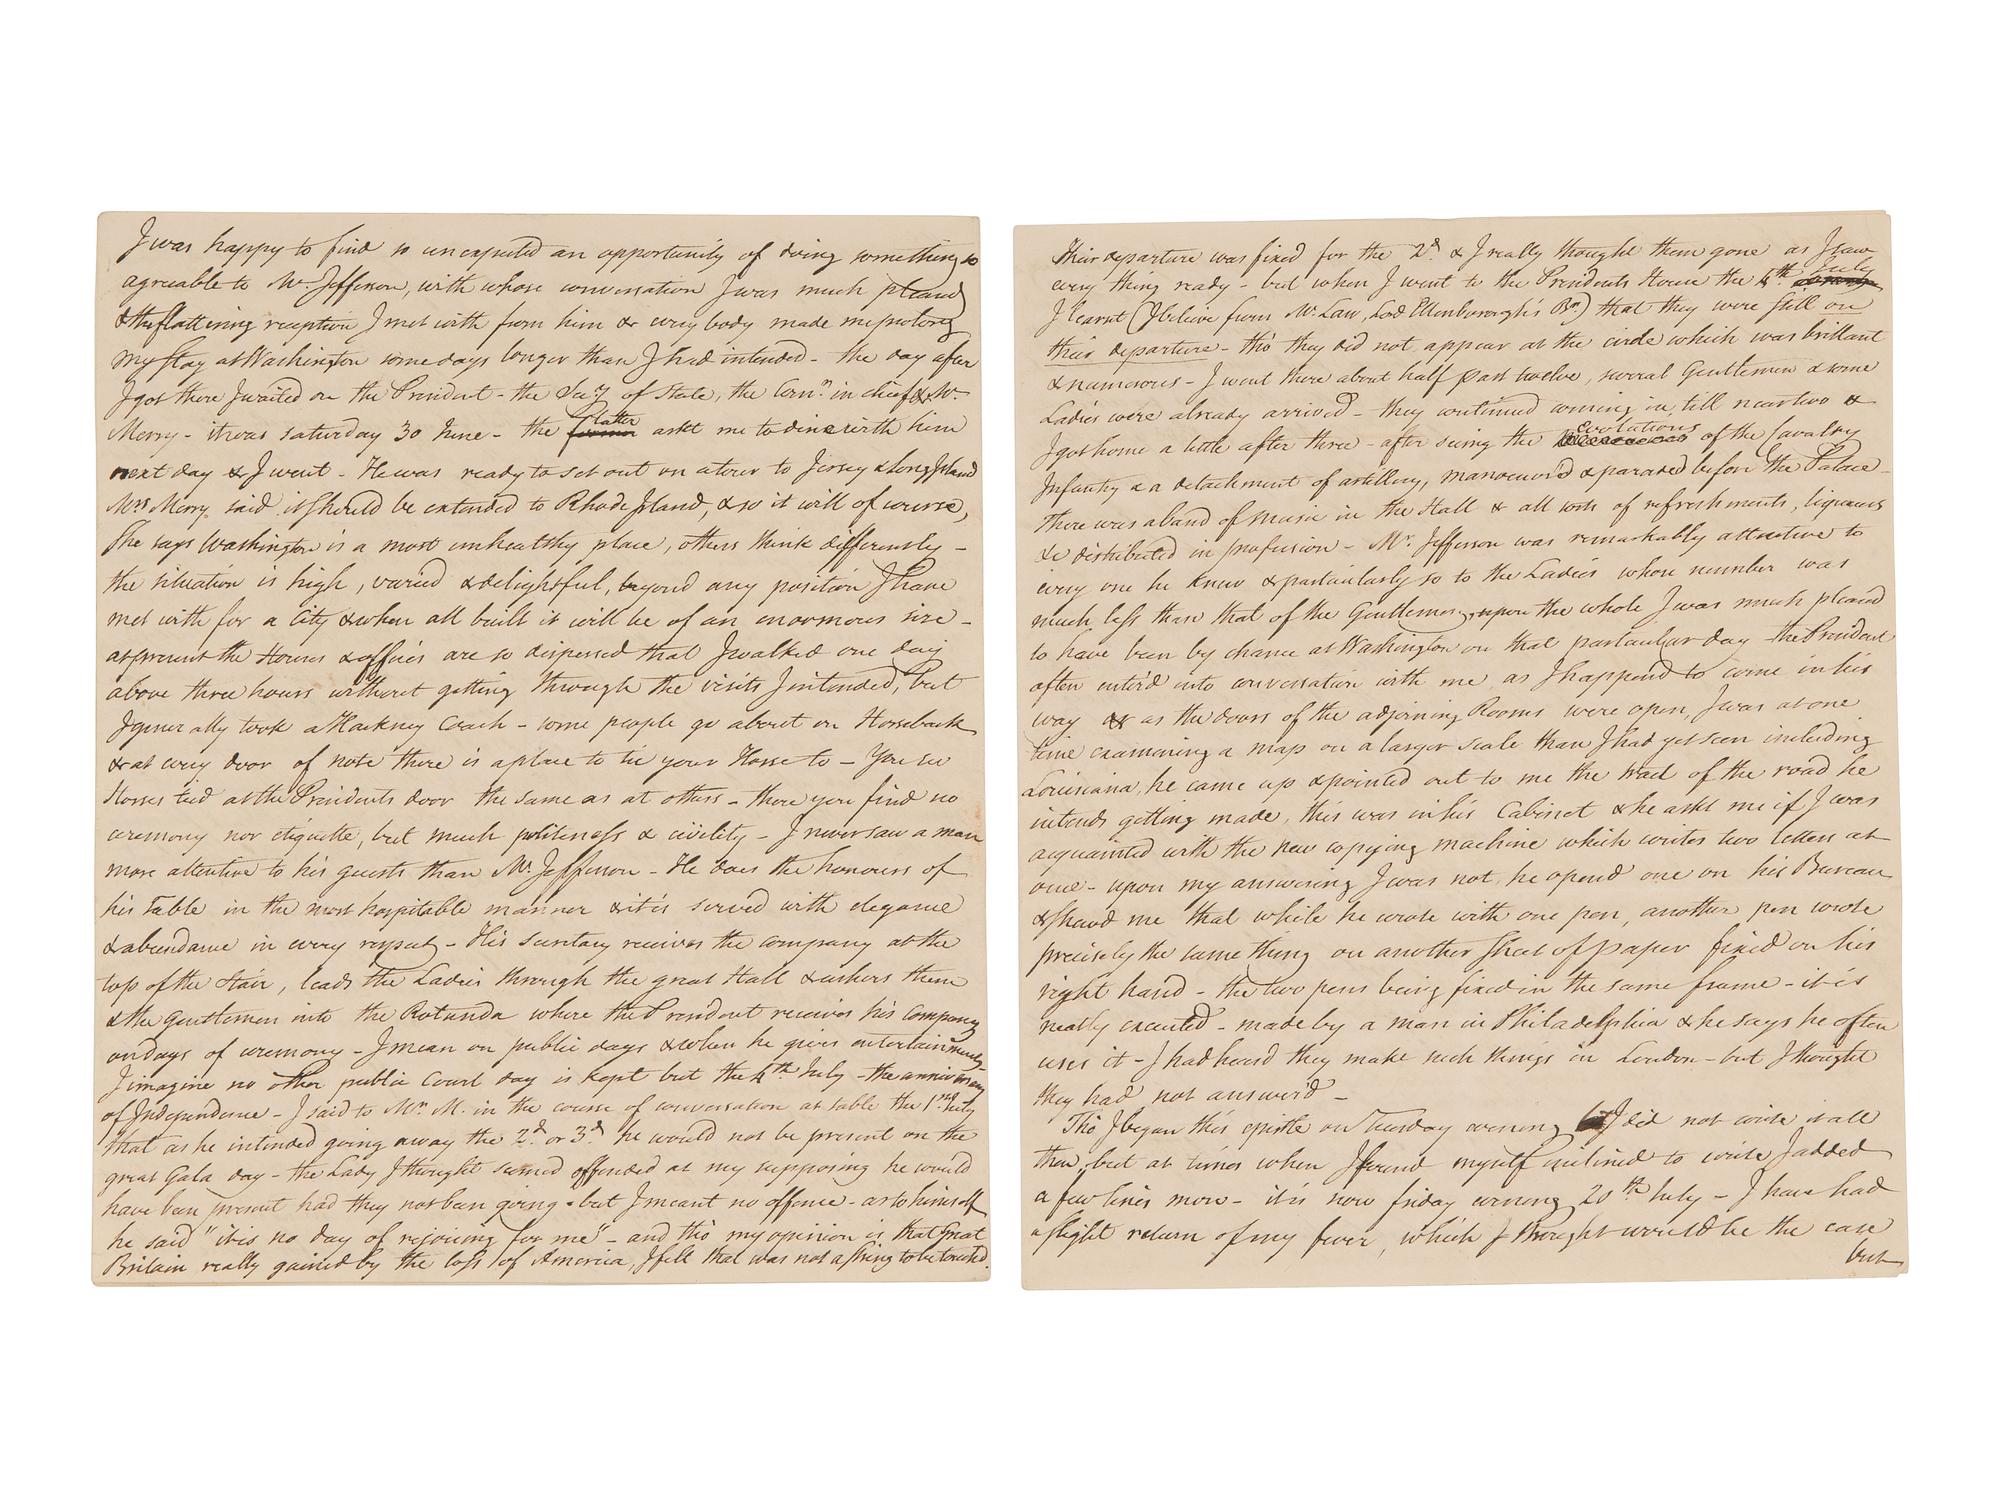 I was happy to find so unexpected an opportunity of doing something so
agreable to Mr. Jefferson, with whose conversation I was much pleased
& the flattering reception I met with from him & every body made me prolong
my stay at Washington some days longer than I had intended - the day after
I got there I waited on the President - the Secy. of State, the Comr. in chief & Mr.
Merry - it was saturday 30 June - the former latter askt me to dine with him
next day & I went - He was ready to set out on a tour to Jersey & Long Island
Mrs Merry said it should be extended to Rhode Island, & so it will of course,
She says Washington is a most unhealthy place, others think differently -
the situation is high, varied & delightful, beyond any position I have
met with for a City & when all built it will be of an enormous size -
at present the Houses & offices are so dispersed that I walked one day
above three hours without getting through the visits I intended, but
I generally took a Hackney Coach - some people go about on Horseback
& at every door of note there is a place to tie your Horse to - You see
Horses tied at the Presidents door the same as at others - there you find no
ceremony nor etiquette, but much politeness & civility - I never saw a man
more attentive to his guests than Mr. Jefferson - He does the honours of
his Table in the most hospitable manner & it is served with elegance
& abundance in every respect - His secretary receives the company at the
top of the Stair, leads the Ladies through the great Hall & ushers them
& the gentlemen into the Rotunda where the President receives his company
on days of ceremony - I mean on public days & when he gives entertainments -
I imagine no other public Court day is kept but the 4th July - the anniversary
of Independence - I said to Mr. M. in the course of conversation at table the 1st July
that as he intended going away the 2d. or 3d. he would not be present on the
great Gala day - the Lady I thought seemed offended at my supposing he would
have been present had they not been going - but I meant no offence - as to himself
he said "it is no day of rejoicing for me" - and tho' my opinion is that Great
Britain really gained by the loss of America, I felt that was not a string to be touched.
Their departure was fixed for the 2d. & I really thought them gone as I saw
every thing ready - but when I went to the Presidents House the 4th July
I learnt (I believe from Mr. Law, Lord Ellenborough's Br.) that they were still on
their departure - tho' they did not appear at the circle which was brillant
& numerous - I went there about half past twelve, several Gentlemen & some
Ladies were already arrived - they continued coming in till near two &
I got home a little after three - after seeing the evolutions of the Cavalry
Infantry & a detachment of artillery, manoeuvr'd & paraded before the Palace -
there was a band of music in the Hall & all sorts of refreshments, liqueurs
&c distributed in profusion - Mr. Jefferson was remarkably attentive to
every one he knew & particularly so to the Ladies whose number was
much less than that of the Gentlemen, upon the whole I was much pleased
to have been by chance at Washington on that particular day the President
often enter'd into conversation with me as I happen'd to come in his
way & as the doors of the adjoining Rooms were open, I was at one
time examining a map on a larger scale than I had yet seen including
Louisiana, he came up & pointed out to me the tract of the road he
intends getting made, this was in his Cabinet & he askt me if I was
acquainted with the new copying machine which writes two letters at
once - upon my answering I was not, he opend one on his Bureau
& shewd me that while he wrote with one pen, another pen wrote
precisely the same thing on another sheet of paper fixed on his
right hand - the two pens being fixed in the same frame - it is
neatly executed - made by a man in Philadelphia & he says he often
uses it - I had heard they make such things in London - but I thought
they had not answer'd -
Tho' I began this epistle on Tuesday evening I did not write it all
then, but at times when I found myself inclined to write I added
a few lines more - it is now friday evening 20th July - I have had
a slight return of my fever, which I thought would be the case
but